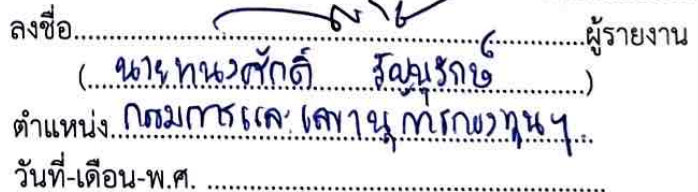 ลงชื่อ........................................ผู้รายงาน
(นายทนงศักดิ์ รัญนุรักษ์)
ตำแหน่ง กรรมการและเลขานุการกองทุนฯ
วันที่-เดือน-พ.ศ. ........................................